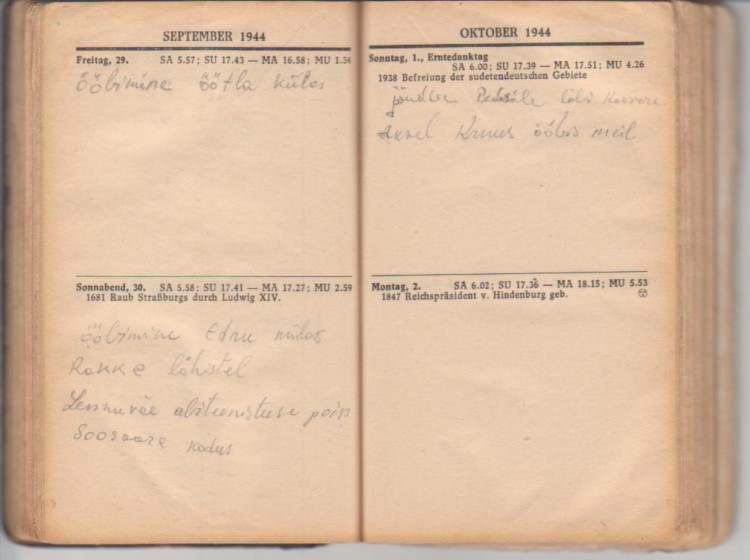 SEPTEMBER 1944
Freitag, 29. SA 5.57; SU 17.43 — MA 16.58; MU 1.34
ööbimine öötla külas
Sonnabend, 30. SA 5.58; SU 17.41 — MA 17.27; MU 2.59
1681 Raub Straßburgs durch Ludwig XIV.
ööbimine Ednu külas
Rakke lähistel
Lennuväe abiteenistuse poiss
Soosaare kodus
OKTOBER 1944
Sonntag, 1., Erntedanktag
SA 6.00; SU 17.39 — MA 17.51; MU 4.26
1938 Befreiung der sudetendeutschen Gebiete
jõudse läbi Kaarere
Kruus ööbis meil
Montag, 2. SA 6.02; SU 17.36 — MA 18.15; MU 5.53
1847 Reichspräsident v. Hindenburg geb.